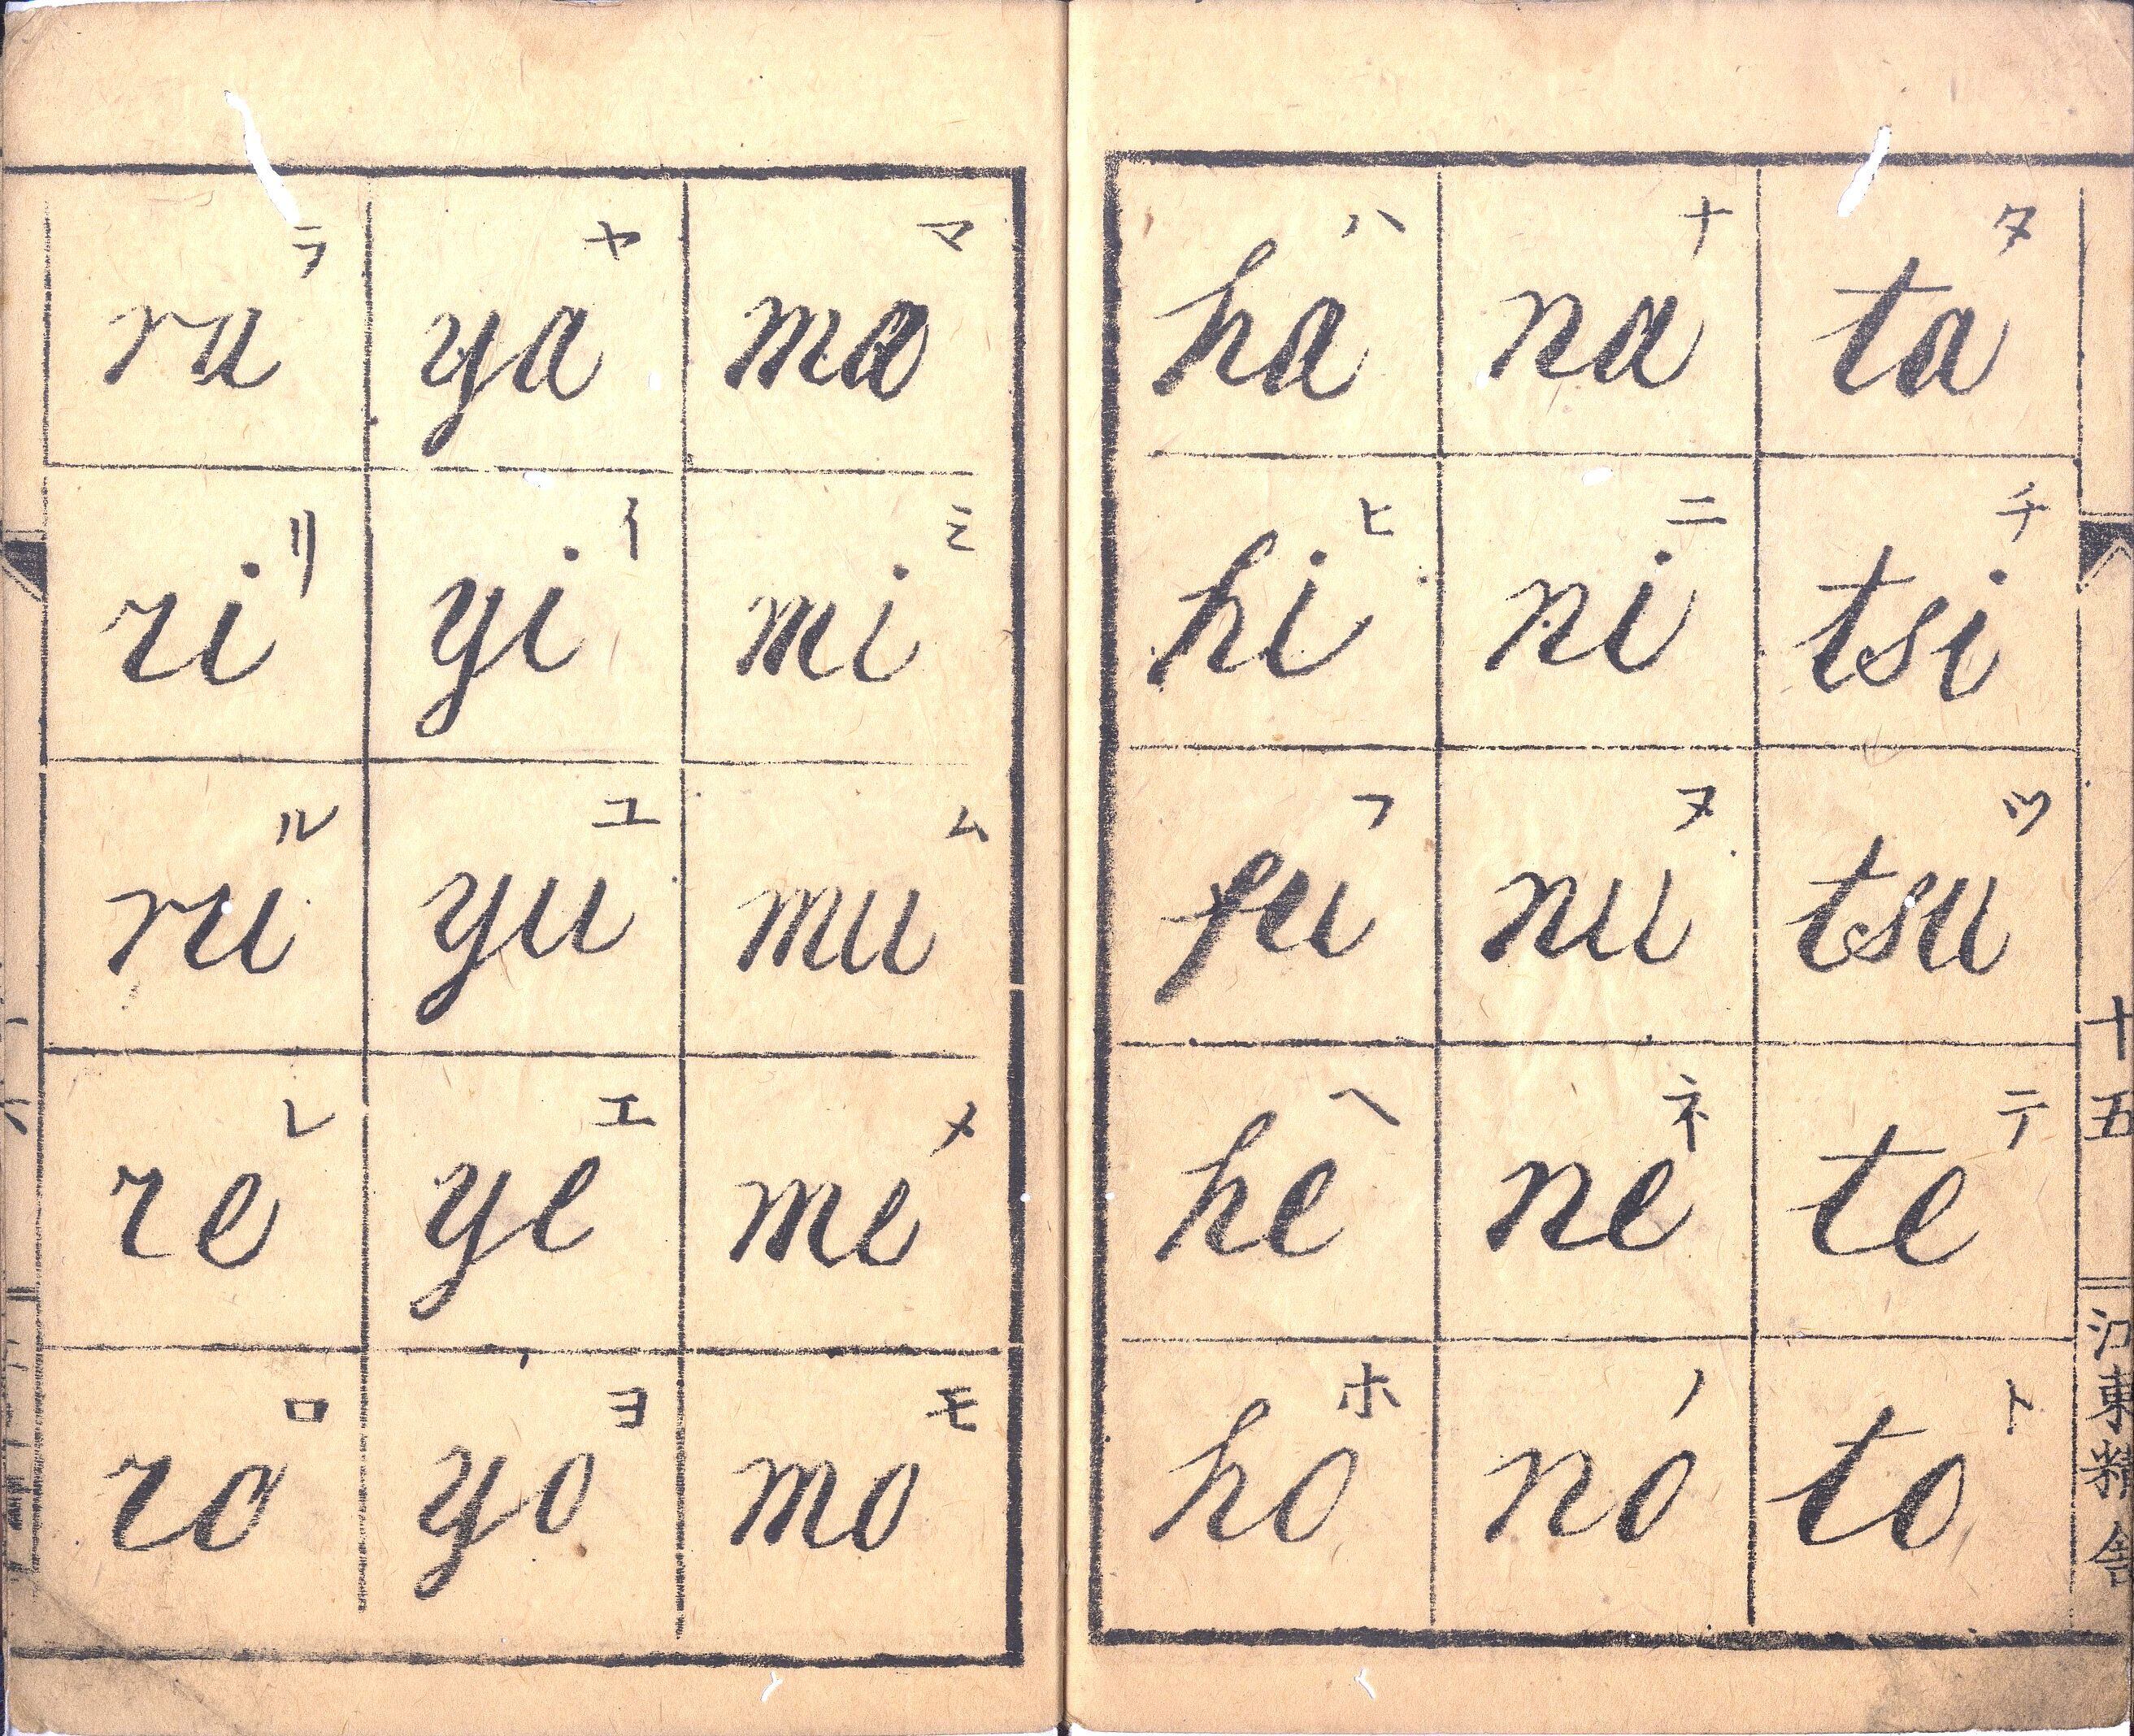 タ ta
チ tsi
ツ tsu
テ te
ト to
ナ na
ニ ni
ヌ nu
ネ ne
ノ no
ハ ha
ヒ hi
フ fu
ヘ he
ホ ho
マ ma
ミ mi
ム mu
メ me
モ mo
ヤ ya
イ yi
ユ yu
エ ye
ヨ yo
ラ ra
リ ri
ル ru
レ re
ロ ro
十五
東 舎